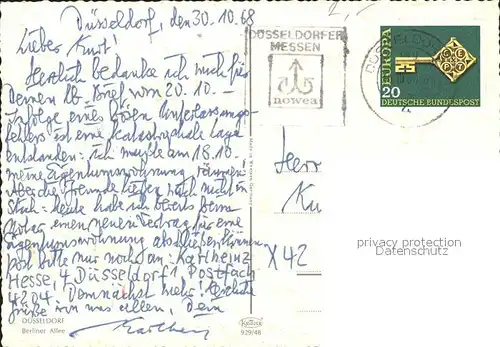 Düsseldorf, den 30.10.68
Lieber Kurt!
Herzlich bedanke ich mich für
Deinen lb. Brief vom 20.10.-
Infolge eines bösen Unterlassungs-
fehlers ist eine katastrophale Lage
entstanden: ich mußte am 18.10.
meine Eigentumswohnung räumen!
Aber die Freunde ließen mich nicht im
Stich: heute habe ich bereits beim
Notar einen neuen Vertrag für eine
Eigentumswohnung abschließen können.
Post bitte nur noch an: Karlheinz
Hesse, 4 Düsseldorf 1, Postfach
4204. Demnächst mehr! Herzliche
Grüße von uns allen, Dein
Karlheinz
DÜSSELDORF
Berliner Allee
DÜSSELDORFER
MESSEN
nowea
DÜSSELDORF
EUROPA
20
DEUTSCHE BUNDESPOST
Herr
Ku
X42
privacy protection
Datenschutz
Krüger
929/48